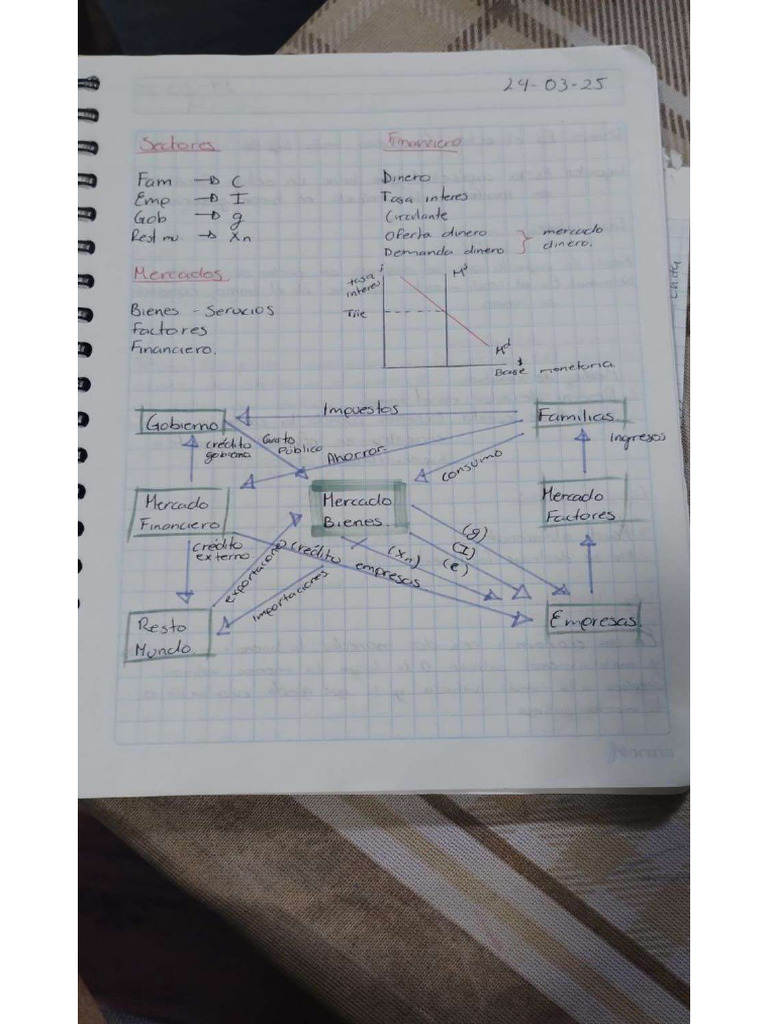 24-03-25
Sectores
Fam → C
Emp → I
Gob → g
Rest mu → Xn
Financiero
Dinero
Tasa interes
Circulante
Oferta dinero
Demanda dinero
mercado
dinero.
Mercados
Bienes - Servicios
Factores
Financiero.
i
tasa
interes
Tiie
Mˢ
Mᵈ
$
Base monetaria
Gobierno
Impuestos
Familias
crédito
gobierno
Gasto
Público
Ahorro
consumo
ingresos
Mercado
Financiero
Mercado
Bienes
Mercado
Factores
crédito
externo
exportaciones
importaciones
crédito empresas
(g)
(I)
(Xn)
(e)
Resto
Mundo
Empresas